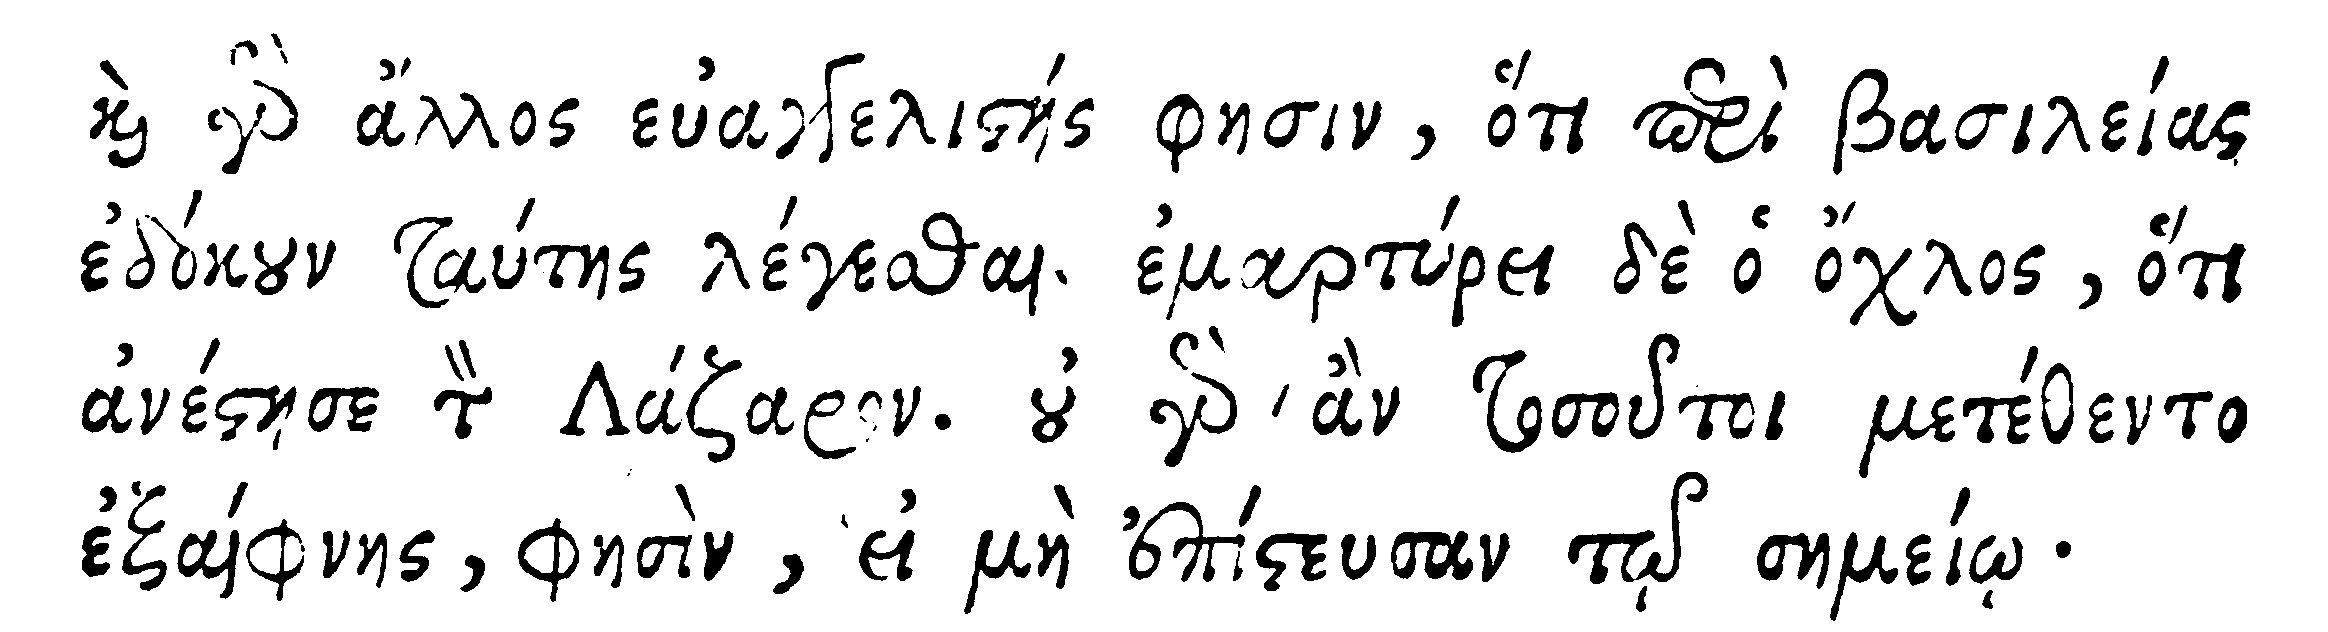 καὶ γὰρ ἄλλος εὐαγγελιστής φησιν, ὅτι περὶ βασιλείας
ἐδόκουν ταύτης λέγεσθαι. ἐμαρτύρει δὲ ὁ ὄχλος, ὅτι
ἀνέστησε τὸν Λάζαρον. οὐ γὰρ ἂν τοσοῦτοι μετέθεντο
ἐξαίφνης, φησὶν, εἰ μὴ ἐπίστευσαν τῷ σημείῳ.